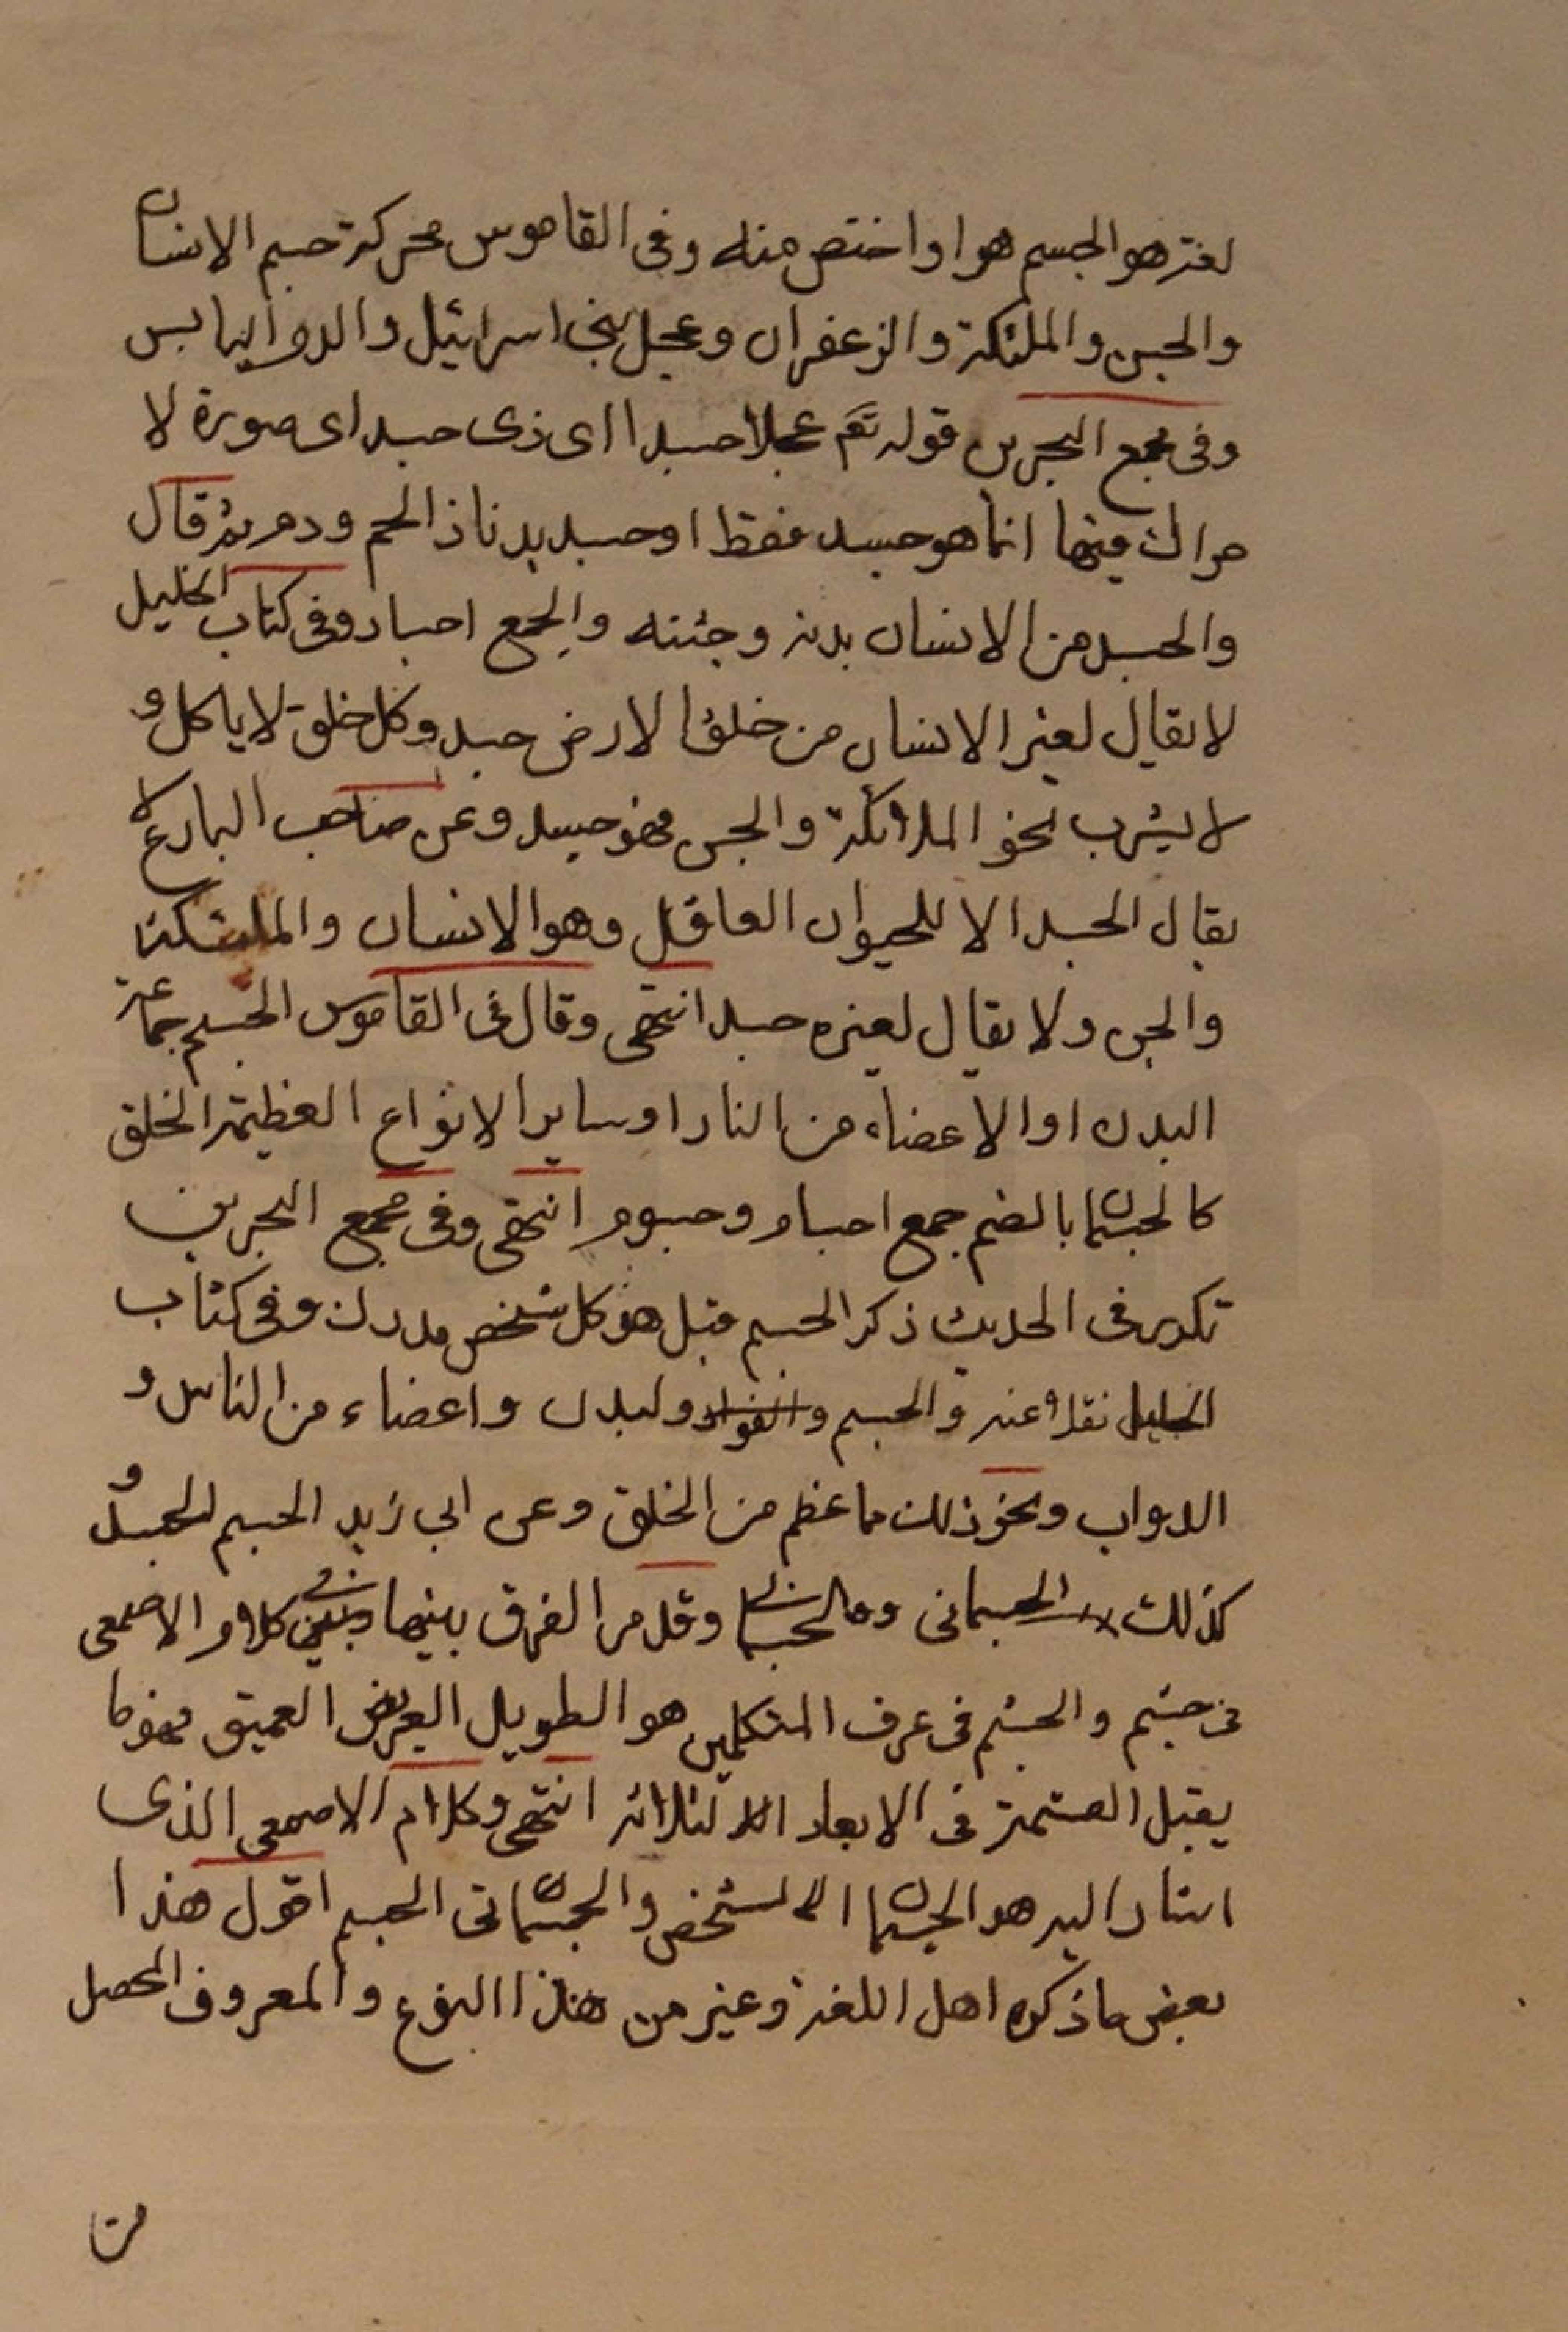 لغة هو الجسم هو او اختص منه وفى القاموس محركة جسم الانسان
والجن والملئكة والزعفران وعجل بنى اسرائيل والدم اليابس
وفى مجمع البحرين قوله تعَ عجلا جسدا اى ذى جسد اى صورة لا
حراك فيها انما هو جسد فقط او جسد بدنا ذا لحم ودم ثم قال
والجسد من الانسان بدنه وجثته والجمع اجساد وفى كتاب الخليل
لا يقال لغير الانسان من خلق الارض جسد وكل خلق لا ياكل و
لا يشرب نحو الملائكة والجن فهو جسد وعن صاحب البارع لا
يقال الجسد الا للحيوان العاقل وهو الانسان والملئكة
والجن ولا يقال لغيره جسد انتهى وقال فى القاموس الجسم جماعة
البدن او الاعضاء من الناس او ساير الانواع العظيمة الخلق
كالجسمان بالضم جمع اجسام وجسوم انتهى وفى مجمع البحرين
تكرر فى الحديث ذكر الجسم قيل هو كل شخص مدرك وفى كتاب
الخليل نقلا عنه والجسم والبدن واعضاء من الناس و
الدواب ونحو ذلك مما عظم من الخلق وعن ابى زيد الجسم الجسد و
كذلك الجسمانى والجثمانى وقد مر الفرق بينهما وبين فى كلام الاصمعى
فى جثم والجسم فى عرف المتكلمين هو الطويل العريض العميق فهو ما
يقبل القسمة فى الابعاد الثلاثة انتهى وكلام الاصمعى الذى
اشار اليه هو الجثمان الشخص والجسمان الجسم اقول هذا
بعض ما ذكره اهل اللغة وغيره من هذا النوع والمعروف المحصل
من